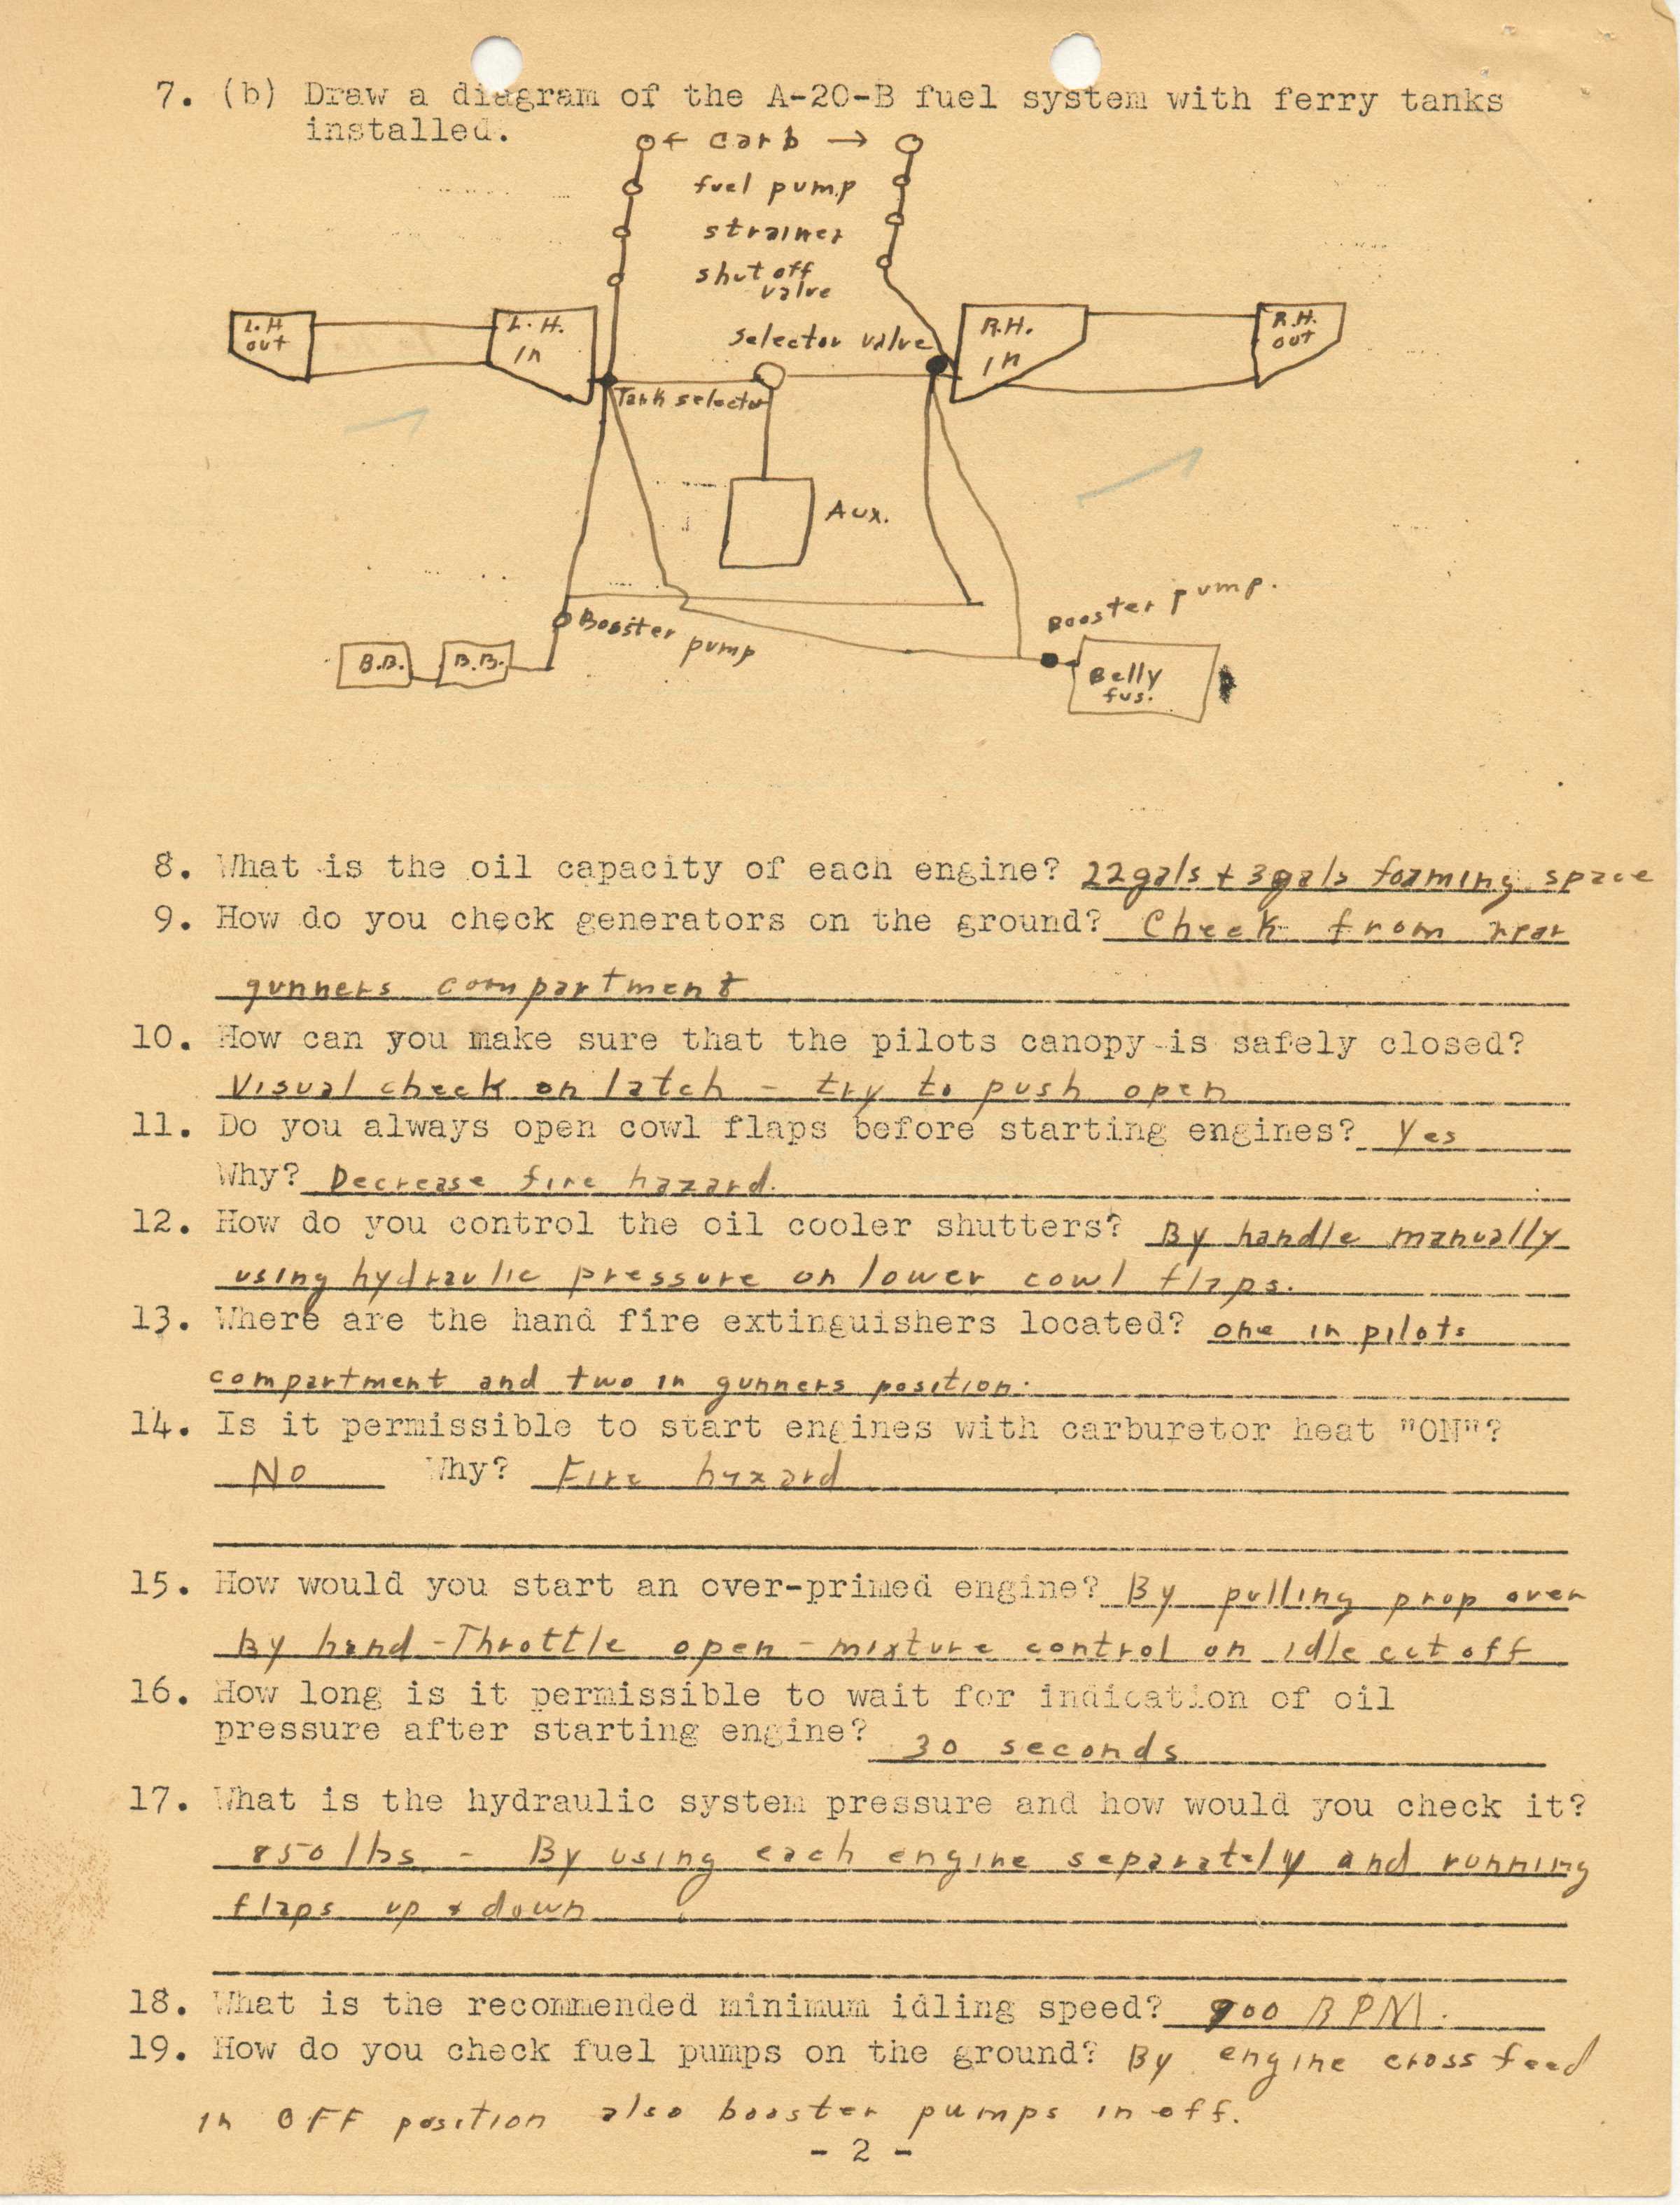 7. (b) Draw a diagram of the A-20-B fuel system with ferry tanks
installed.
← carb →
fuel pump
strainer
shut off
valve
L.H. out
L.H. in
selector valve
R.H. in
R.H. out
Tank selector
Aux.
Booster pump
Booster pump.
B.B.
B.B.
Belly
fus.
8. What is the oil capacity of each engine? 22gals + 3gals foaming space
9. How do you check generators on the ground? Check from rear
gunners compartment
10. How can you make sure that the pilots canopy is safely closed?
Visual check on latch - try to push open
11. Do you always open cowl flaps before starting engines? Yes
Why? Decrease fire hazard.
12. How do you control the oil cooler shutters? By handle manually
using hydraulic pressure on lower cowl flaps.
13. Where are the hand fire extinguishers located? one in pilots
compartment and two in gunners position.
14. Is it permissible to start engines with carburetor heat "ON"?
No Why? Fire hazard
15. How would you start an over-primed engine? By pulling prop over
by hand - Throttle open - mixture control on idle cut off
16. How long is it permissible to wait for indication of oil
pressure after starting engine? 30 seconds
17. What is the hydraulic system pressure and how would you check it?
850 lbs. - By using each engine separately and running
flaps up & down
18. What is the recommended minimum idling speed? 900 RPM.
19. How do you check fuel pumps on the ground? By engine cross feed
in OFF position also booster pumps in off.
- 2 -